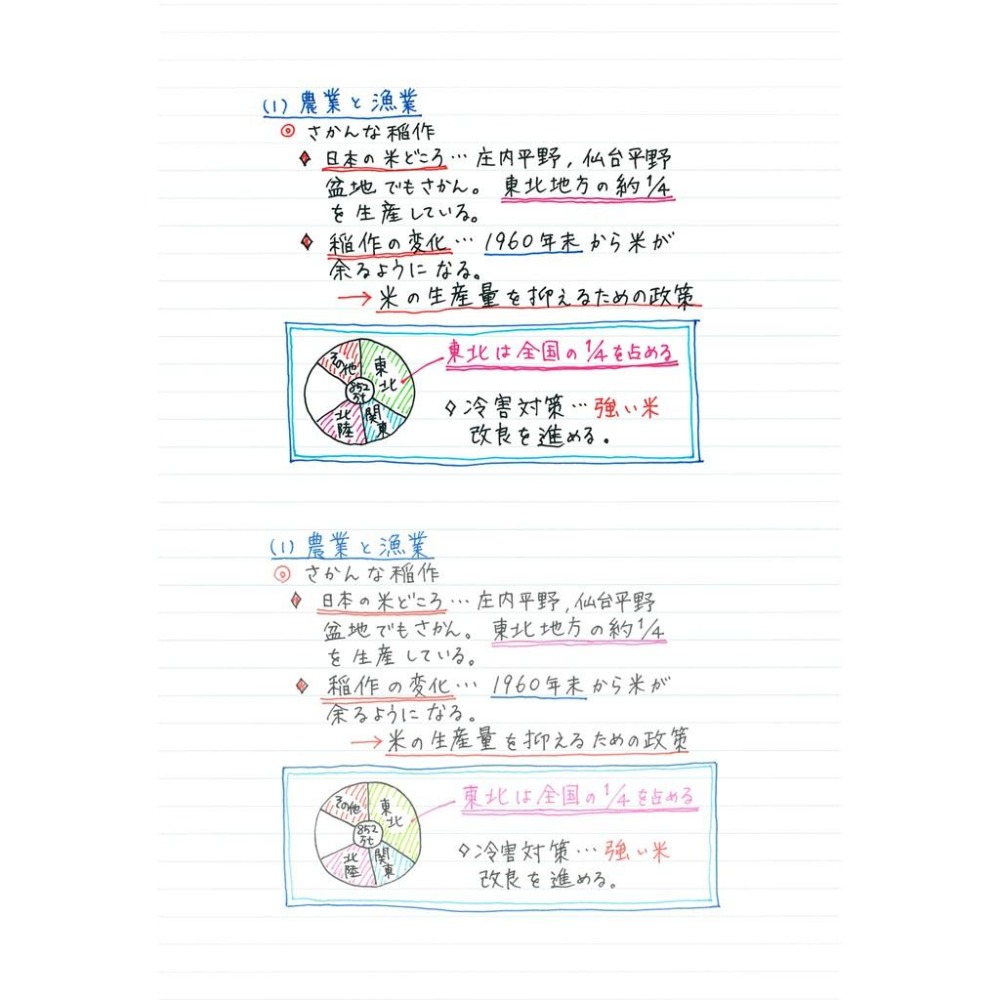 (1) 農業と漁業
◎ さかんな稲作
◆ 日本の米どころ… 庄内平野, 仙台平野
盆地でもさかん。 東北地方の約1/4
を生産している。
◆ 稲作の変化… 1960年末から米が
余るようになる。
→ 米の生産量を抑えるための政策
東北は全国の1/4を占める
その他
東北
852万t
北陸
関東
◇冷害対策…強い米
改良を進める。
(1) 農業と漁業
◎ さかんな稲作
◆ 日本の米どころ… 庄内平野, 仙台平野
盆地でもさかん。 東北地方の約1/4
を生産している。
◆ 稲作の変化… 1960年末から米が
余るようになる。
→ 米の生産量を抑えるための政策
東北は全国の1/4を占める
その他
東北
852万t
北陸
関東
◇冷害対策…強い米
改良を進める。